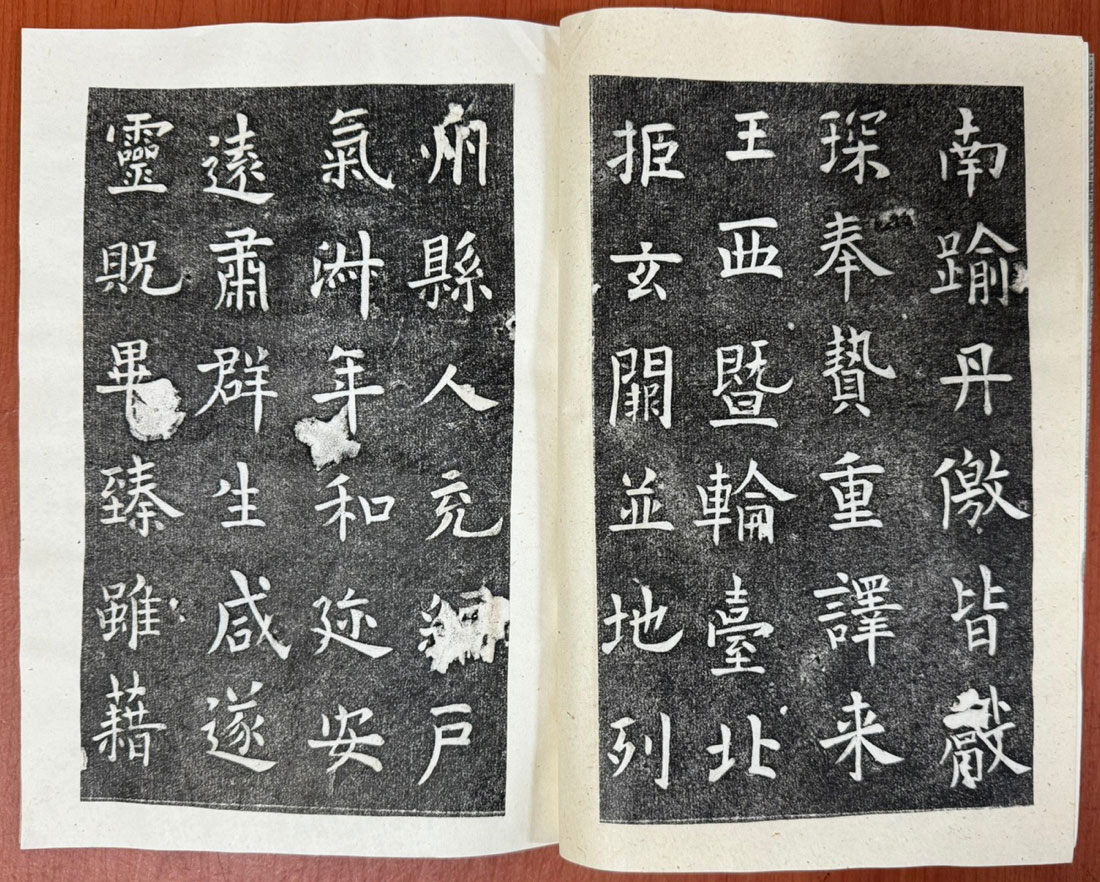 南踰丹儌皆獻
琛奉贄重譯来
王西暨輪臺北
拒玄闕並地列
州縣人充編戶
氣淑年和迩安
遠肅群生咸遂
靈貺畢臻雖藉